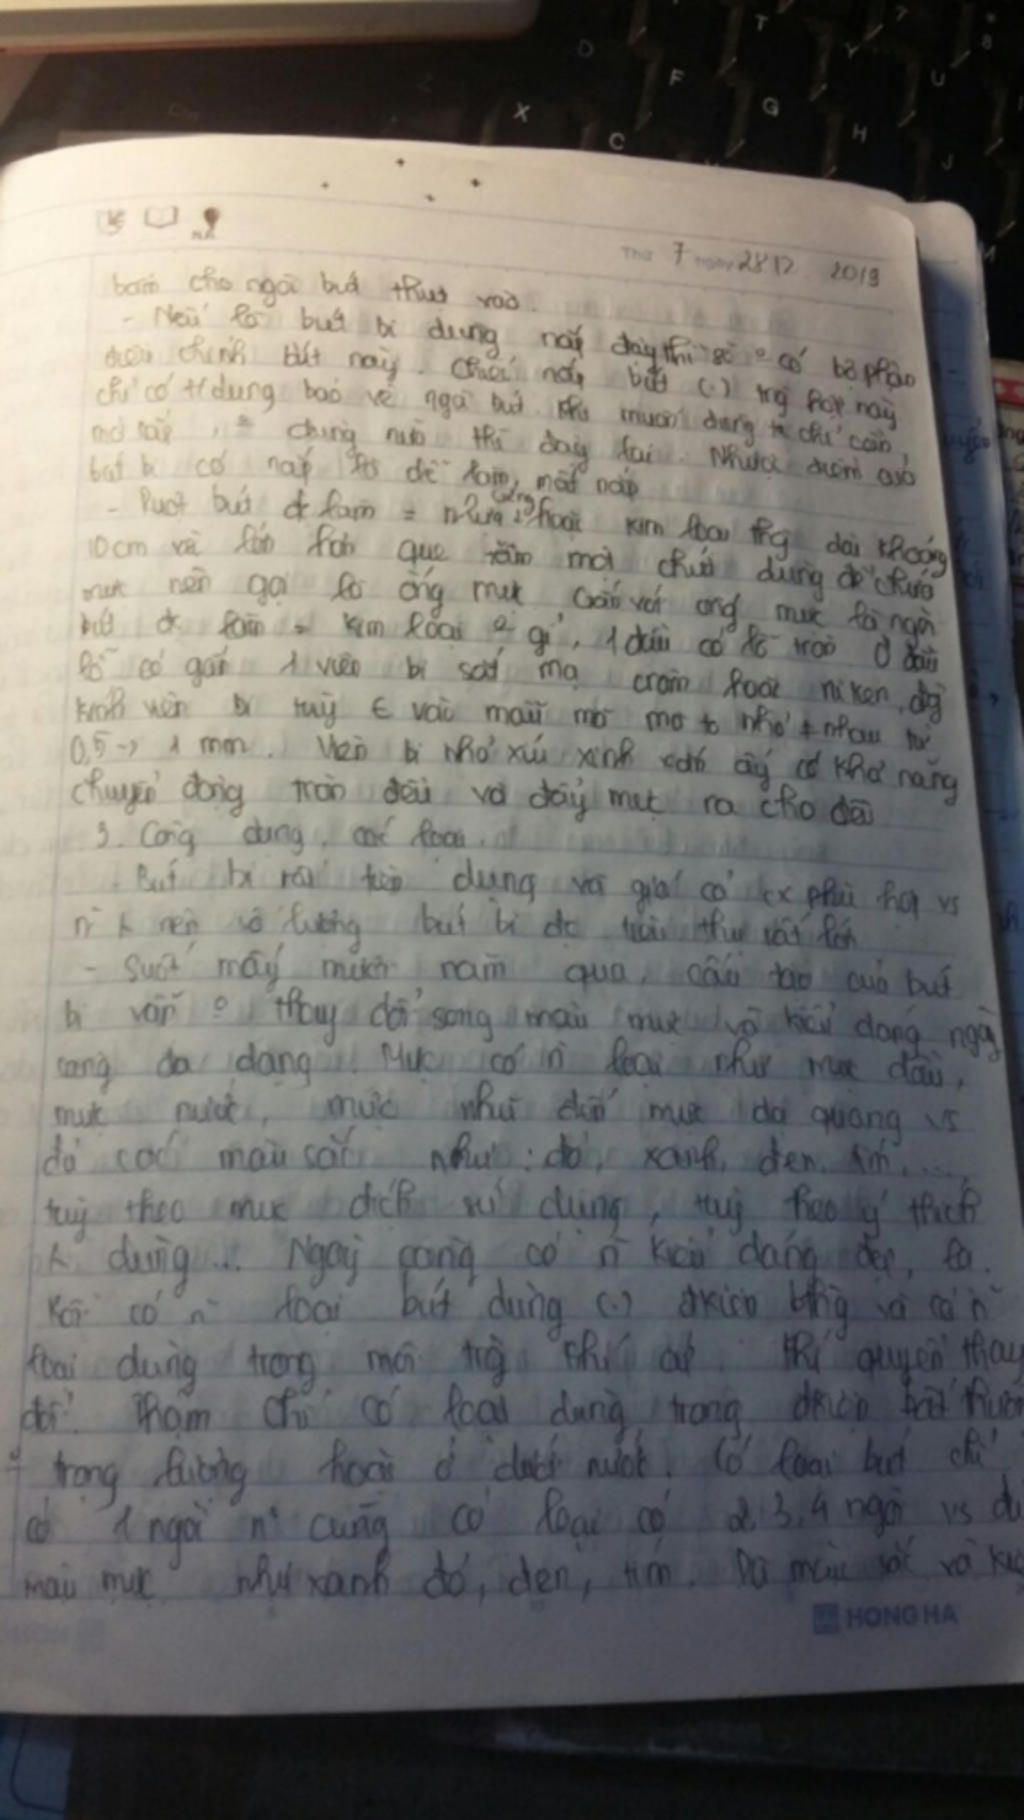 Thứ 7 ngày 28 12 2019
bấm cho ngòi bút thụt vào.
- Nếu là bút bi dùng nắp đậy thì sẽ º có bộ phận
điều chỉnh bút này. Chiếc nắp bút (.) trg hợp này
chỉ có t/dụng bảo vệ ngòi bút. Khi muốn dùng ta chỉ cần
mở nắp, º dùng nữa thì đậy lại. Nhược điểm của
bút bi có nắp là dễ làm mất nắp
- Ruột bút đc làm = nhựa cứng hoặc kim loại thg dài khoảng
10cm và lớn hơn que tăm một chút dùng để chứa
mực nên gọi là ống mực. Gắn với ống mực là ngòi
bút đc làm = kim loại º gỉ, 1 đầu có lỗ tròn. Ở đầu
lỗ có gắn 1 viên bi sắt mạ crôm hoặc niken, đg
kính viên bi tuỳ € vào mẫu mã mà to nhỏ ≠ nhau từ
0,5 -> 1 mm. Viên bi nhỏ xíu xinh xắn ấy có khả năng
chuyển động tròn đều và đẩy mực ra cho đều
3. Công dụng, các loại.
- Bút bi rất tiện dụng và giá cả cx phù hợp vs
nên số lượng bút bi đc tiêu thụ rất lớn
- Suốt mấy mươi năm qua, cấu tạo của bút
bi vẫn º thay đổi song màu mực và kiểu dáng ngày
càng đa dạng. Mực có n̄ loại như mực dầu,
mực nước, mực nhũ đến mực dạ quang vs
đủ các màu sắc như: đỏ, xanh, đen, tím,...
tuỳ theo mục đích sử dụng, tuỳ theo ý thích
dùng... Ngày càng có n̄ kiểu dáng đẹp, lạ.
Rồi có n̄ loại bút dùng (.) đkiện bthg và cả n̄
loại dùng trong môi trg khí áp khí quyển thay
đổi. Thậm chí có loại dùng trong đkiện bất thườ
trọng lượng hoặc ở dưới nước. Có loại bút chỉ
có 1 ngòi n̄ cũng có loại có 2,3,4 ngòi vs đủ
màu mực như xanh đỏ, đen, tím. Dù màu sắc và kiể
HONG HA